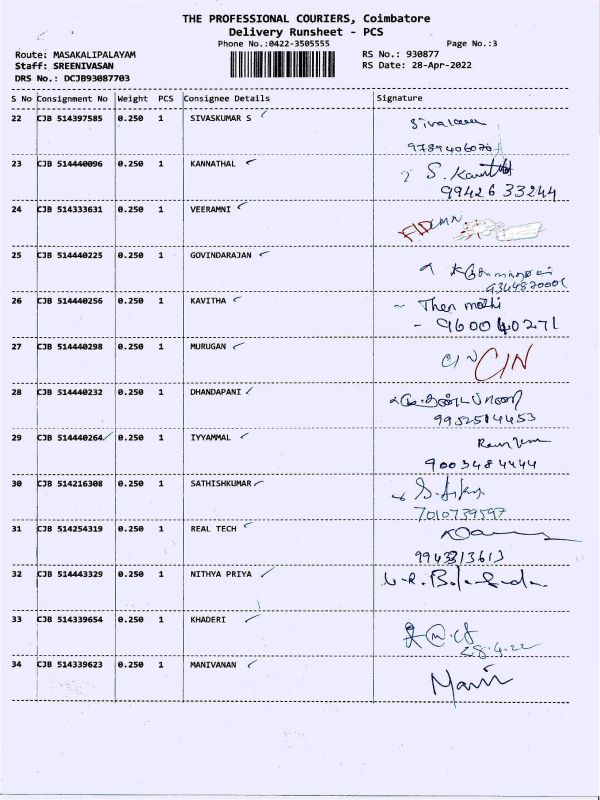 THE PROFESSIONAL COURIERS, Coimbatore
Delivery Runsheet - PCS
Phone No.:0422-3505555 Page No.:3
Route: MASAKALIPALAYAM RS No.: 930877
Staff: SREENIVASAN RS Date: 28-Apr-2022
DRS No.: DCJB93087703
S No Consignment No Weight PCS Consignee Details Signature
22 CJB 514397585 0.250 1 SIVASKUMAR S
23 CJB 514440096 0.250 1 KANNATHAL
9942633244
24 CJB 514333631 0.250 1 VEERAMNI
25 CJB 514440225 0.250 1 GOVINDARAJAN
26 CJB 514440256 0.250 1 KAVITHA Then mozhi
960040271
27 CJB 514440298 0.250 1 MURUGAN C/N C/N
28 CJB 514440232 0.250 1 DHANDAPANI
9952514453
29 CJB 514440264 0.250 1 IYYAMMAL
9003484444
30 CJB 514216308 0.250 1 SATHISHKUMAR
7010739597
31 CJB 514254319 0.250 1 REAL TECH
9943313613
32 CJB 514443329 0.250 1 NITHYA PRIYA
33 CJB 514339654 0.250 1 KHADERI
28.4.22
34 CJB 514339623 0.250 1 MANIVANAN
Mani